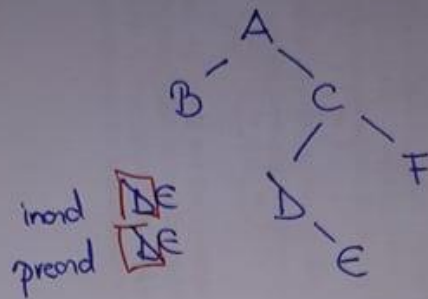 A
B
C
D
F
E
inord DE
preord DE